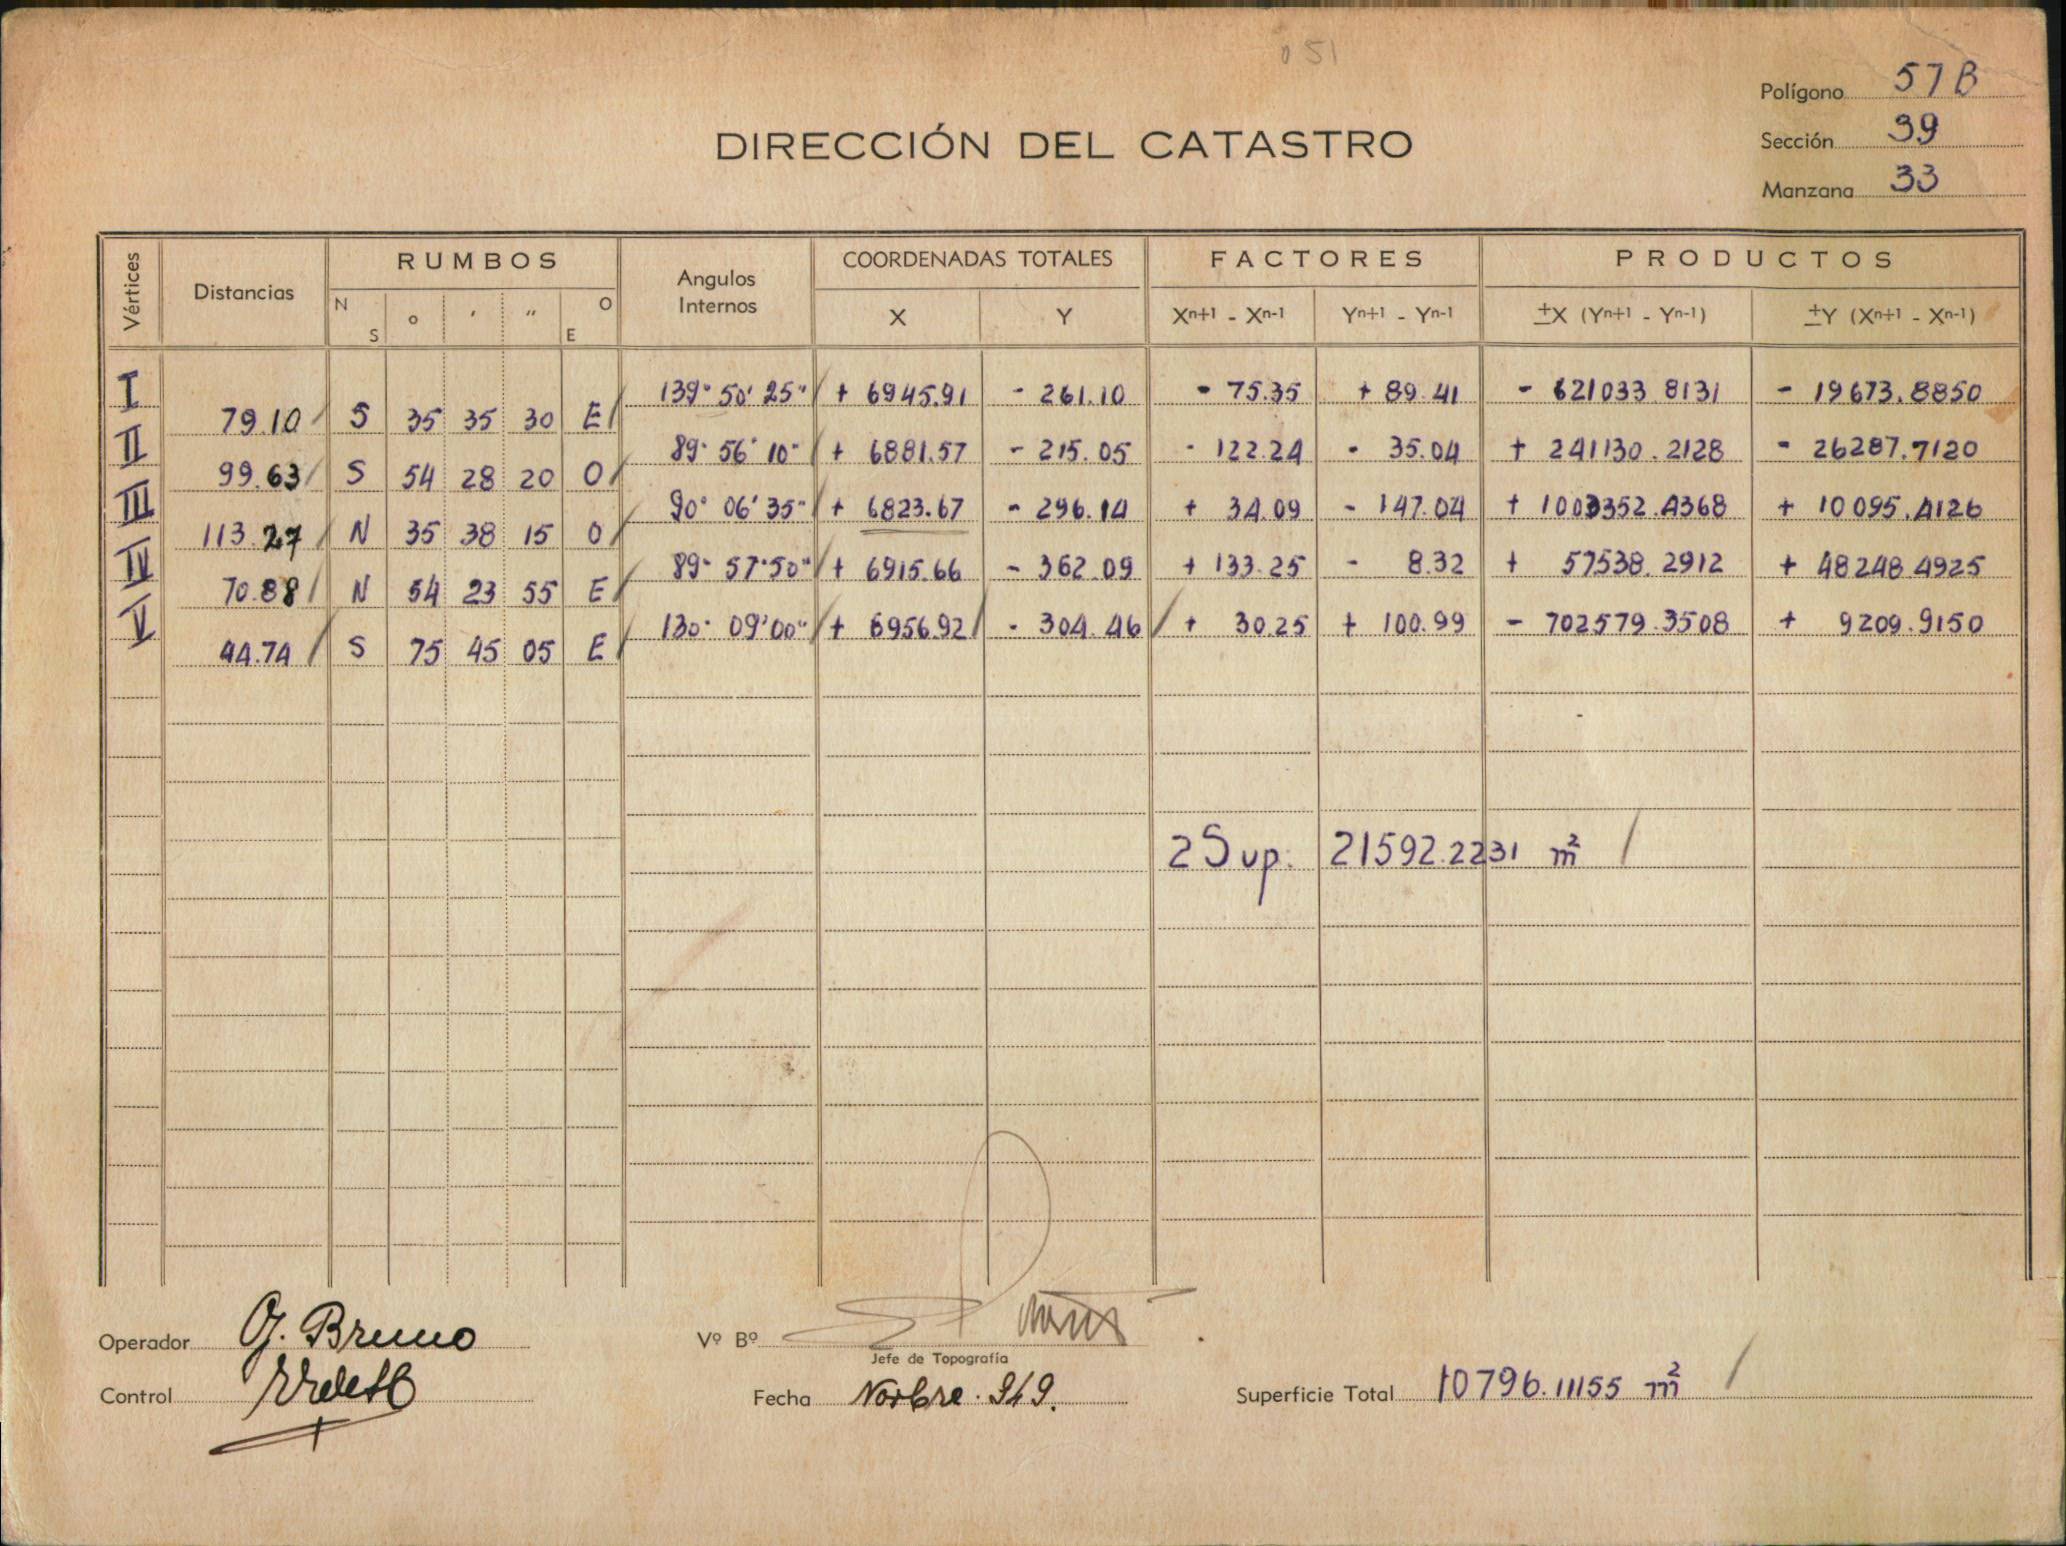 051
Polígono 57 B
DIRECCIÓN DEL CATASTRO
Sección 39
Manzana 33
Vértices Distancias RUMBOS Angulos Internos COORDENADAS TOTALES FACTORES PRODUCTOS
N S ° ' " O E X Y Xⁿ⁺¹ - Xⁿ⁻¹ Yⁿ⁺¹ - Yⁿ⁻¹ ±X (Yⁿ⁺¹ - Yⁿ⁻¹) ±Y (Xⁿ⁺¹ - Xⁿ⁻¹)
I 139° 50' 25" + 6945.91 - 261.10 - 75.35 + 89.41 - 621033.8131 - 19673.8850
79.10 S 35 35 30 E
II 89° 56' 10" + 6881.57 - 215.05 - 122.24 - 35.04 + 241130.2128 - 26287.7120
99.63 S 54 28 20 O
III 90° 06' 35" + 6823.67 - 296.14 + 34.09 - 147.04 + 1003352.4368 + 10095.4126
113.27 N 35 38 15 O
IV 89° 57' 50" + 6915.66 - 362.09 + 133.25 - 8.32 + 57538.2912 + 48248.4925
70.88 N 54 23 55 E
V 130° 09' 00" + 6956.92 - 304.46 + 30.25 + 100.99 - 702579.3508 + 9209.9150
44.74 S 75 45 05 E
2 Sup. 21592.2231 m²
Operador G. Bruno Vº Bº
Jefe de Topografía
Control Fecha Novbre. 949. Superficie Total 10796.11155 m²